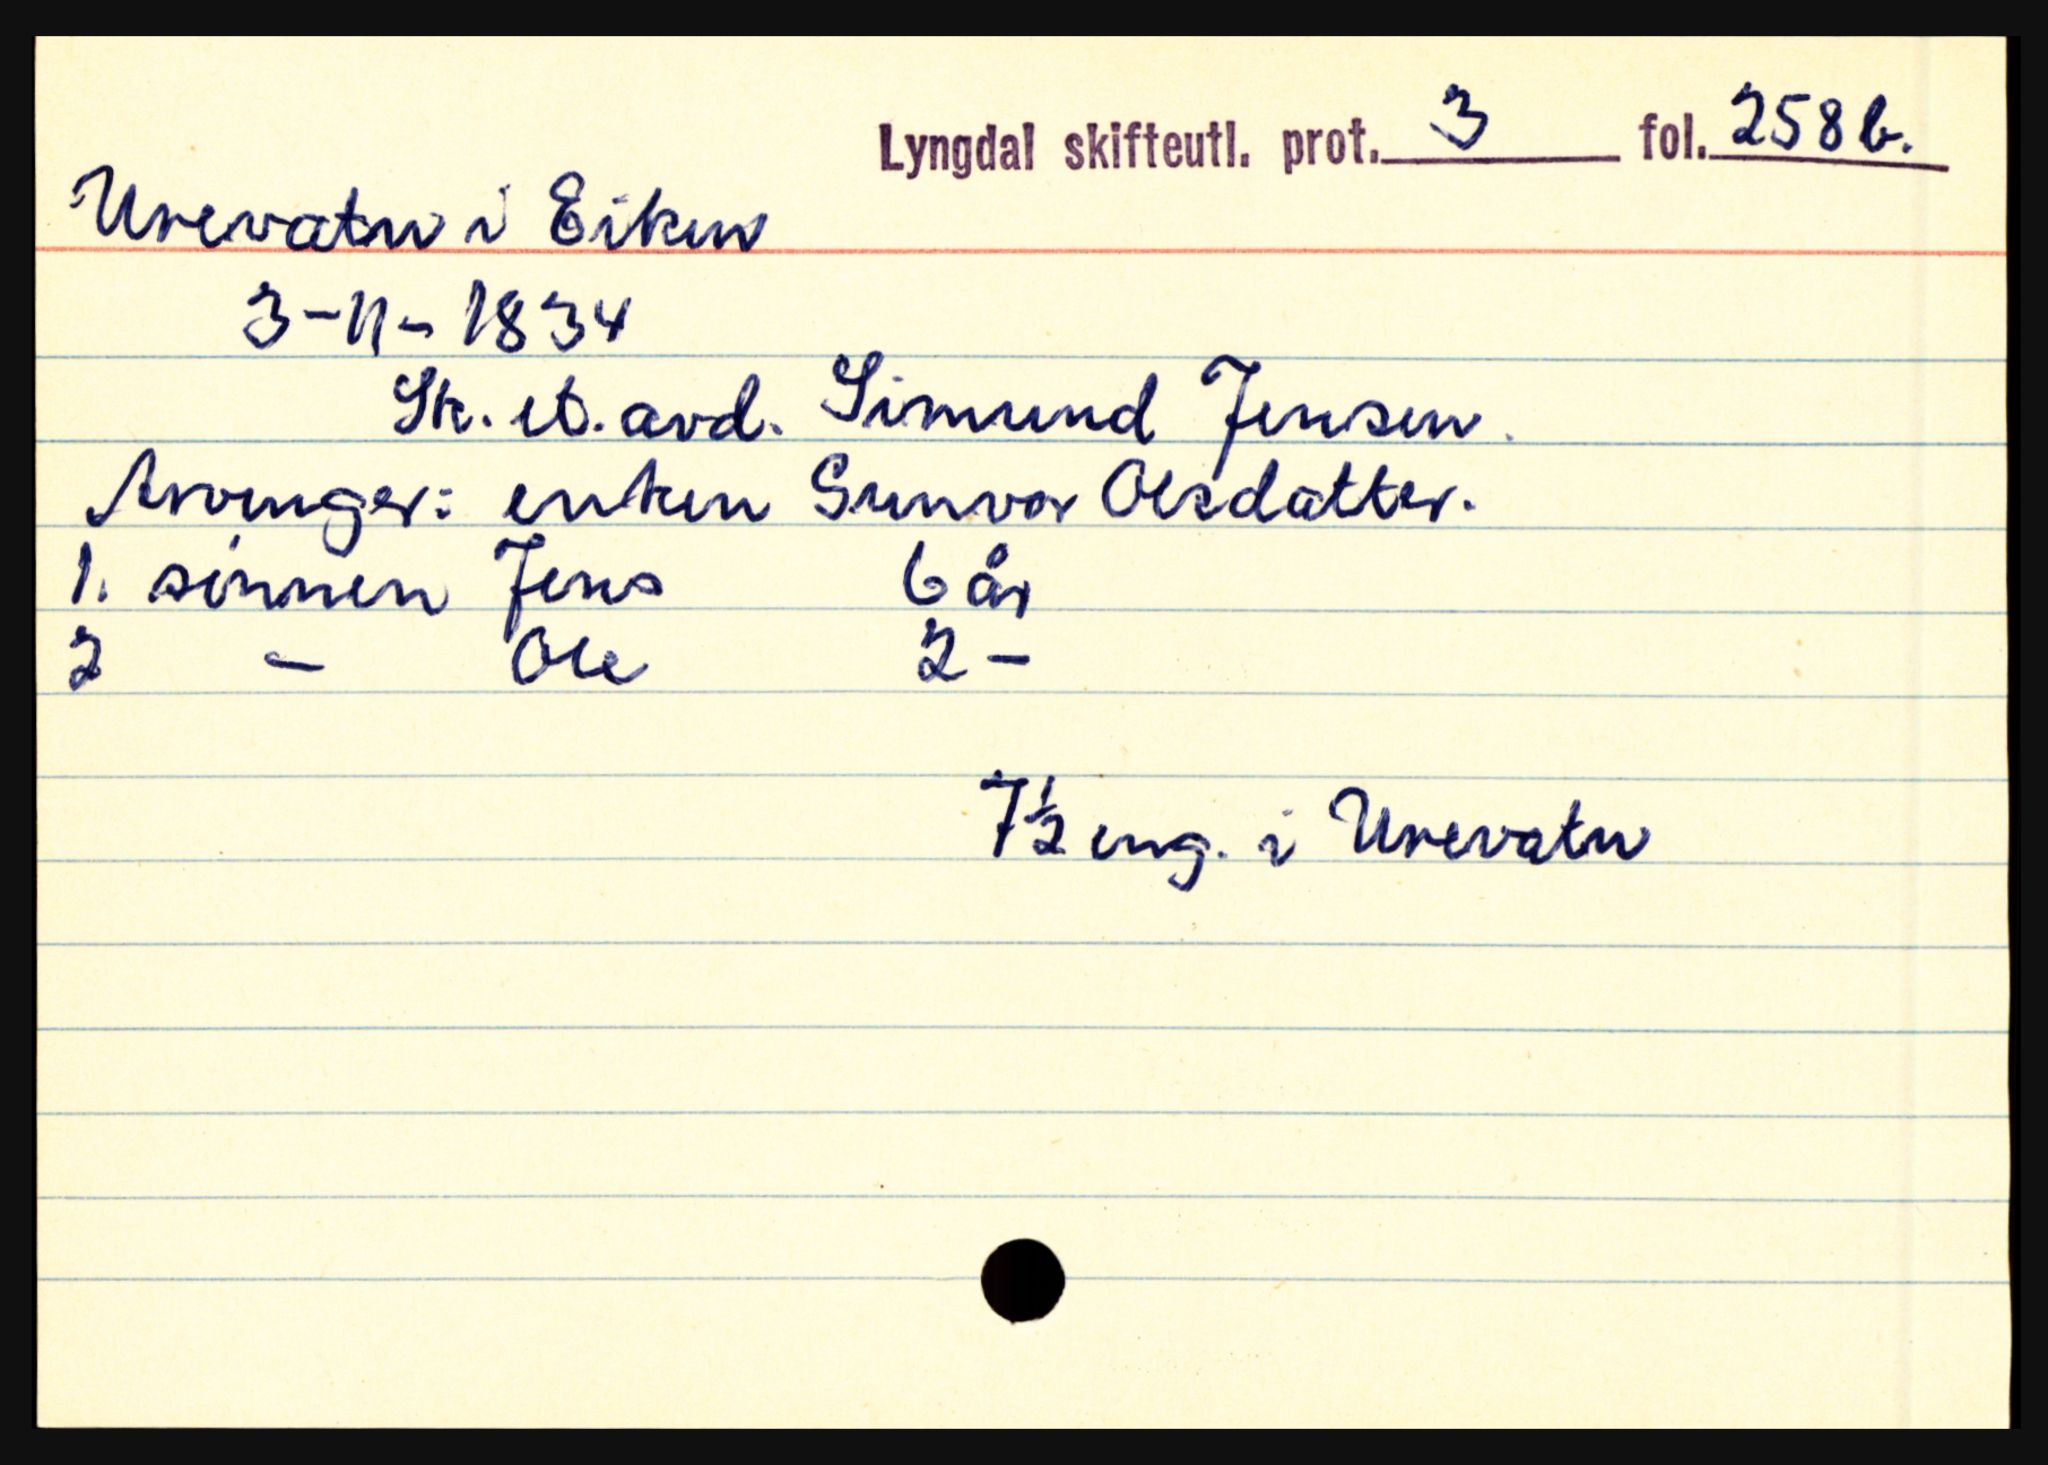 Lyngdal skifteutl. prot. 3 fol. 258 b.
Urevatn i Eiken
3-11-1834
Sk. et. avd. Simund Jensen.
Arvinger: enken Gunvor Olsdatter.
1. sønnen Jens 6 år
2 - Ole 2 -
7 1/2 eng. i Urevatn